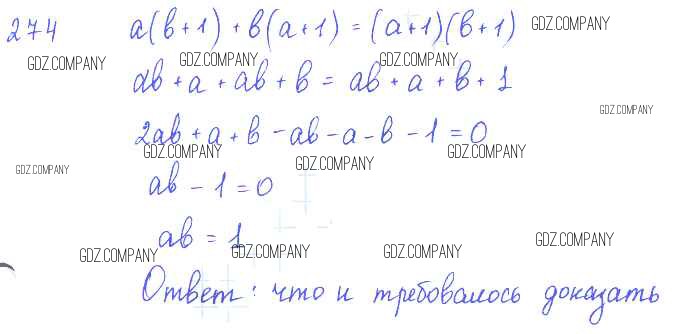 274 a(b+1) + b(a+1) = (a+1)(b+1) GDZ.COMPANY
GDZ.COMPANY GDZ.COMPANY GDZ.COMPANY
ab + a + ab + b = ab + a + b + 1
GDZ.COMPANY
2ab + a + b - ab - a - b - 1 = 0
GDZ.COMPANY GDZ.COMPANY
GDZ.COMPANY GDZ.COMPANY
ab - 1 = 0
ab = 1 GDZ.COMPANY
GDZ.COMPANY GDZ.COMPANY GDZ.COMPANY
Ответ: что и требовалось доказать